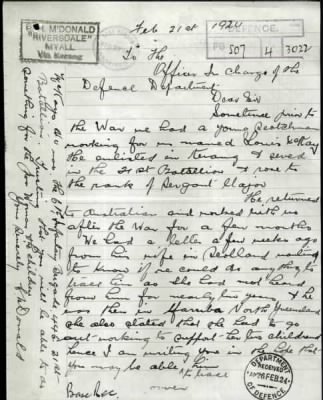 Feb 21st 1924
McDONALD
"RIVERSDALE"
MYALL
Via Kerang
DEFENCE
507 4 3022
To The
Officer In Charge of the
Defence Department
Dear Sir
Sometime prior to
the War we had a young Scotchman
working for us named Louis McKay
He enlisted in Kerang & served
in the 21st Battalion & rose to
the rank of Sergant Major
He returned
to Australian and worked with us
after the War for a few months
We had a letter a few weeks ago
from his wife in Scotland writing
to know if we could do anything to
trace him as she had not heard
from him for nearly two years & he
was then in North Queensland
she also stated that she had to go
out working to support her children
hence I am writing you in the hope that
you may be able to trace him
over
DEPARTMENT
RECEIVED
FEB. 24
OF DEFENCE
McKay's No was the 6th Infantry Brigade 4461 21st
Battalion. Trusting that you will be able to do
something for the poor Woman & children
Yours Sincerely McDonald